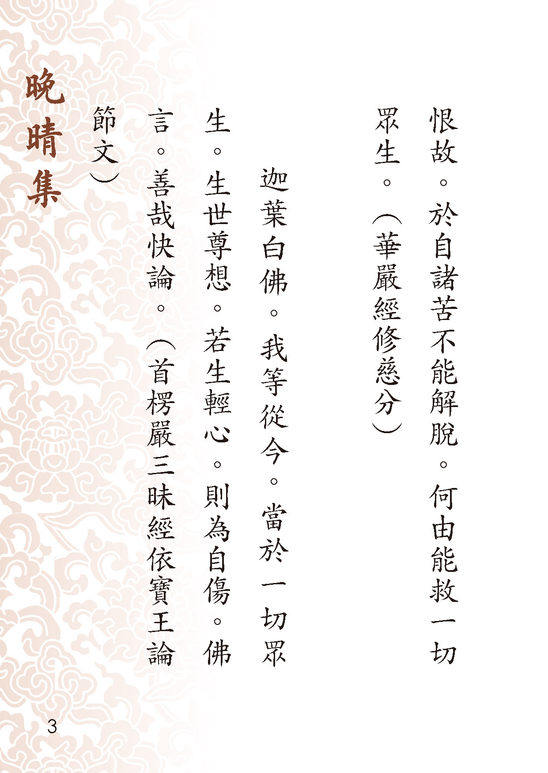 恨故。於自諸苦不能解脫。何由能救一切
眾生。（華嚴經修慈分）
迦葉白佛。我等從今。當於一切眾
生。生世尊想。若生輕心。則為自傷。佛
言。善哉快論。（首楞嚴三昧經依寶王論
節文）
晚晴集
3